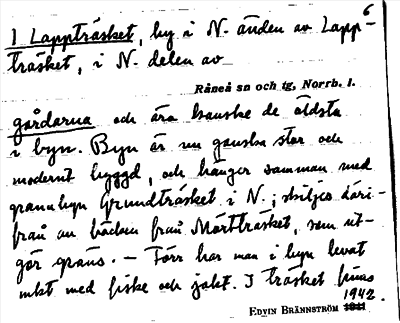 6
1 Lappträsket, by i N. änden av Lapp-
träsket, i N. delen av
Råneå sn och tg, Norrb. l.
gårdarna och äro kanske de äldsta
i byn. Byn är nu ganska stor och
modernt byggd, och hänger samman med
grannbyn Grundträsket i N.; skiljes däri-
från av bäcken från Mörtträsket, som ut-
gör gräns. — Förr har man i byn levat
mkt med fiske och jakt. I träsket finns
1942.
EDVIN BRÄNNSTRÖM 1941